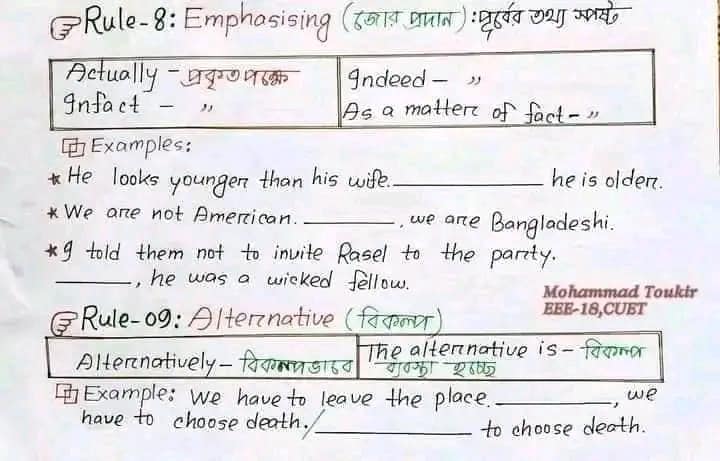 Rule-8: Emphasising (জোর প্রদান) : পূর্বের তথ্য স্পষ্ট
Actually - প্রকৃতপক্ষে
Infact - ,,
Indeed - ,,
As a matter of fact - ,,
Examples:
* He looks younger than his wife. __________ he is older.
* We are not American. ________, we are Bangladeshi.
* I told them not to invite Rasel to the party.
______, he was a wicked fellow.
Mohammad Toukir
EEE-18,CUET
Rule-09: Alternative (বিকল্প)
Alternatively - বিকল্পভাবে
The alternative is - বিকল্প
ব্যবস্থা হচ্ছে
Example: We have to leave the place. __________, we
have to choose death. / ____________ to choose death.